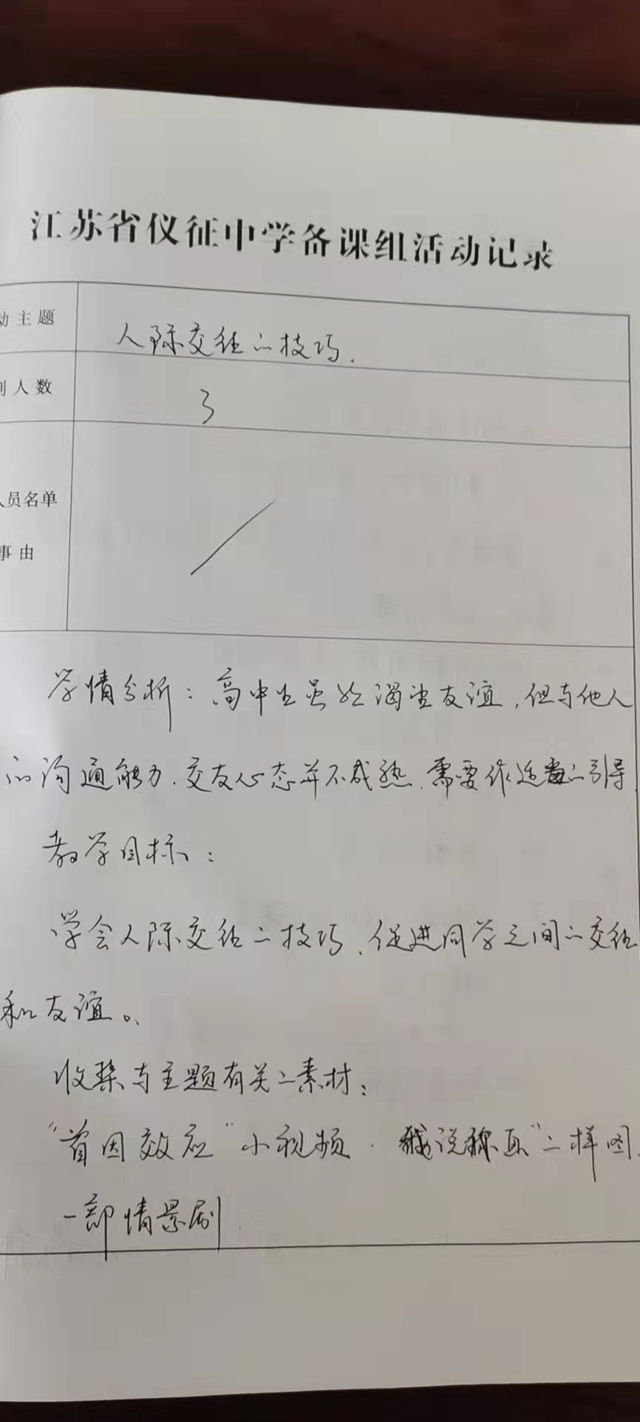 江苏省仪征中学备课组活动记录
动主题 人际交往的技巧.
到人数 3
人员名单
事由
学情分析：高中生虽然渴望友谊，但与他人
的沟通能力.交友心态并不成熟.需要作适当的引导
教学目标：
学会人际交往的技巧、促进同学之间的交往
和友谊。
收集与主题有关的素材：
“首因效应”小视频. 我说你画”的样图.
一部情景剧